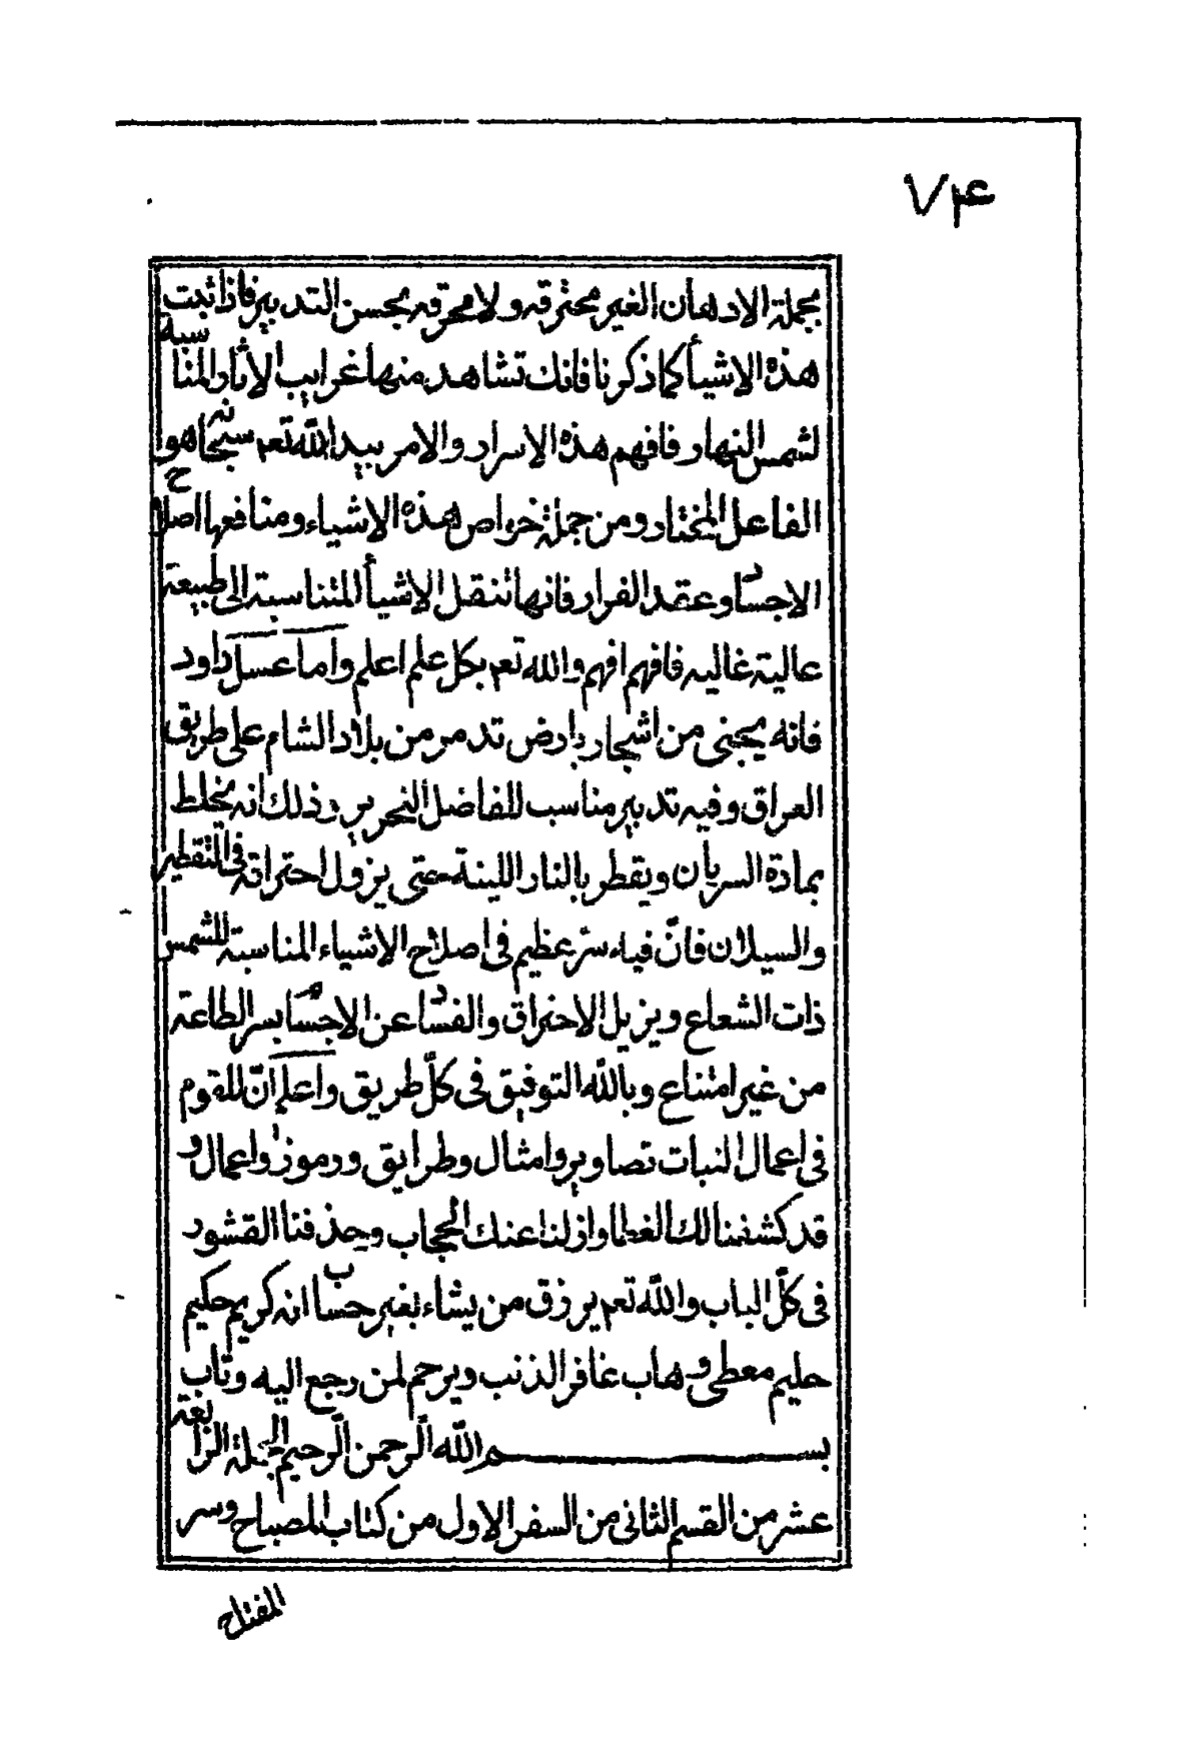 ٧٤
بجملة الادهان الغير محترقه ولا محرقه بحسن التدبير فاذا ثبت
هذه الاشيأ كما ذكرنا فانك تشاهد منها غرايب الاثار المناسبة
لشمس النهار فافهم هذه الاسرار والامر بيد الله تعم سبحانه هو
الفاعل المختار ومن جملة خواص هذه الاشياء ومنافعها اصلاح
الاجساد وعقد الفرار فانها تنقل الاشيأ المتناسبة الى طبيعة
عالية غاليه فافهم افهم والله تعم بكل علم اعلم واما عسل داود
فانه يجنى من اشجار بارض تدمر من بلاد الشام على طريق
العراق وفيه تدبير مناسب للفاضل النحرير وذلك انه يخلط
بمادة السريان ويقطر بالنار اللينة حتى يزول احتراقه فى التقطير
والسيلان فانّ فيه سرّ عظيم فى اصلاح الاشياء المناسبة للشمس
ذات الشعاع ويزيل الاحتراق والفساد عن الاجسام بسر الطاعة
من غير امتناع وبالله التوفيق فى كلّ طريق واعلم انّ للقوم
فى اعمال النبات تصاوير وامثال وطرايق ورموزا واعمال و
قد كشفنا لك الغطا وازلنا عنك الحجاب وحذفنا القشور
فى كلّ الباب والله تعم يرزق من يشاء بغير حساب انه كريم حكيم
حليم معطى وهاب غافر الذنب ويرحم لمن رجع اليه وتاب
بسم الله الرّحمن الرّحيم الجملة الرابعة
عشر من القسم الثانى من السفر الاول من كتاب المصباح وسر
المفتاح